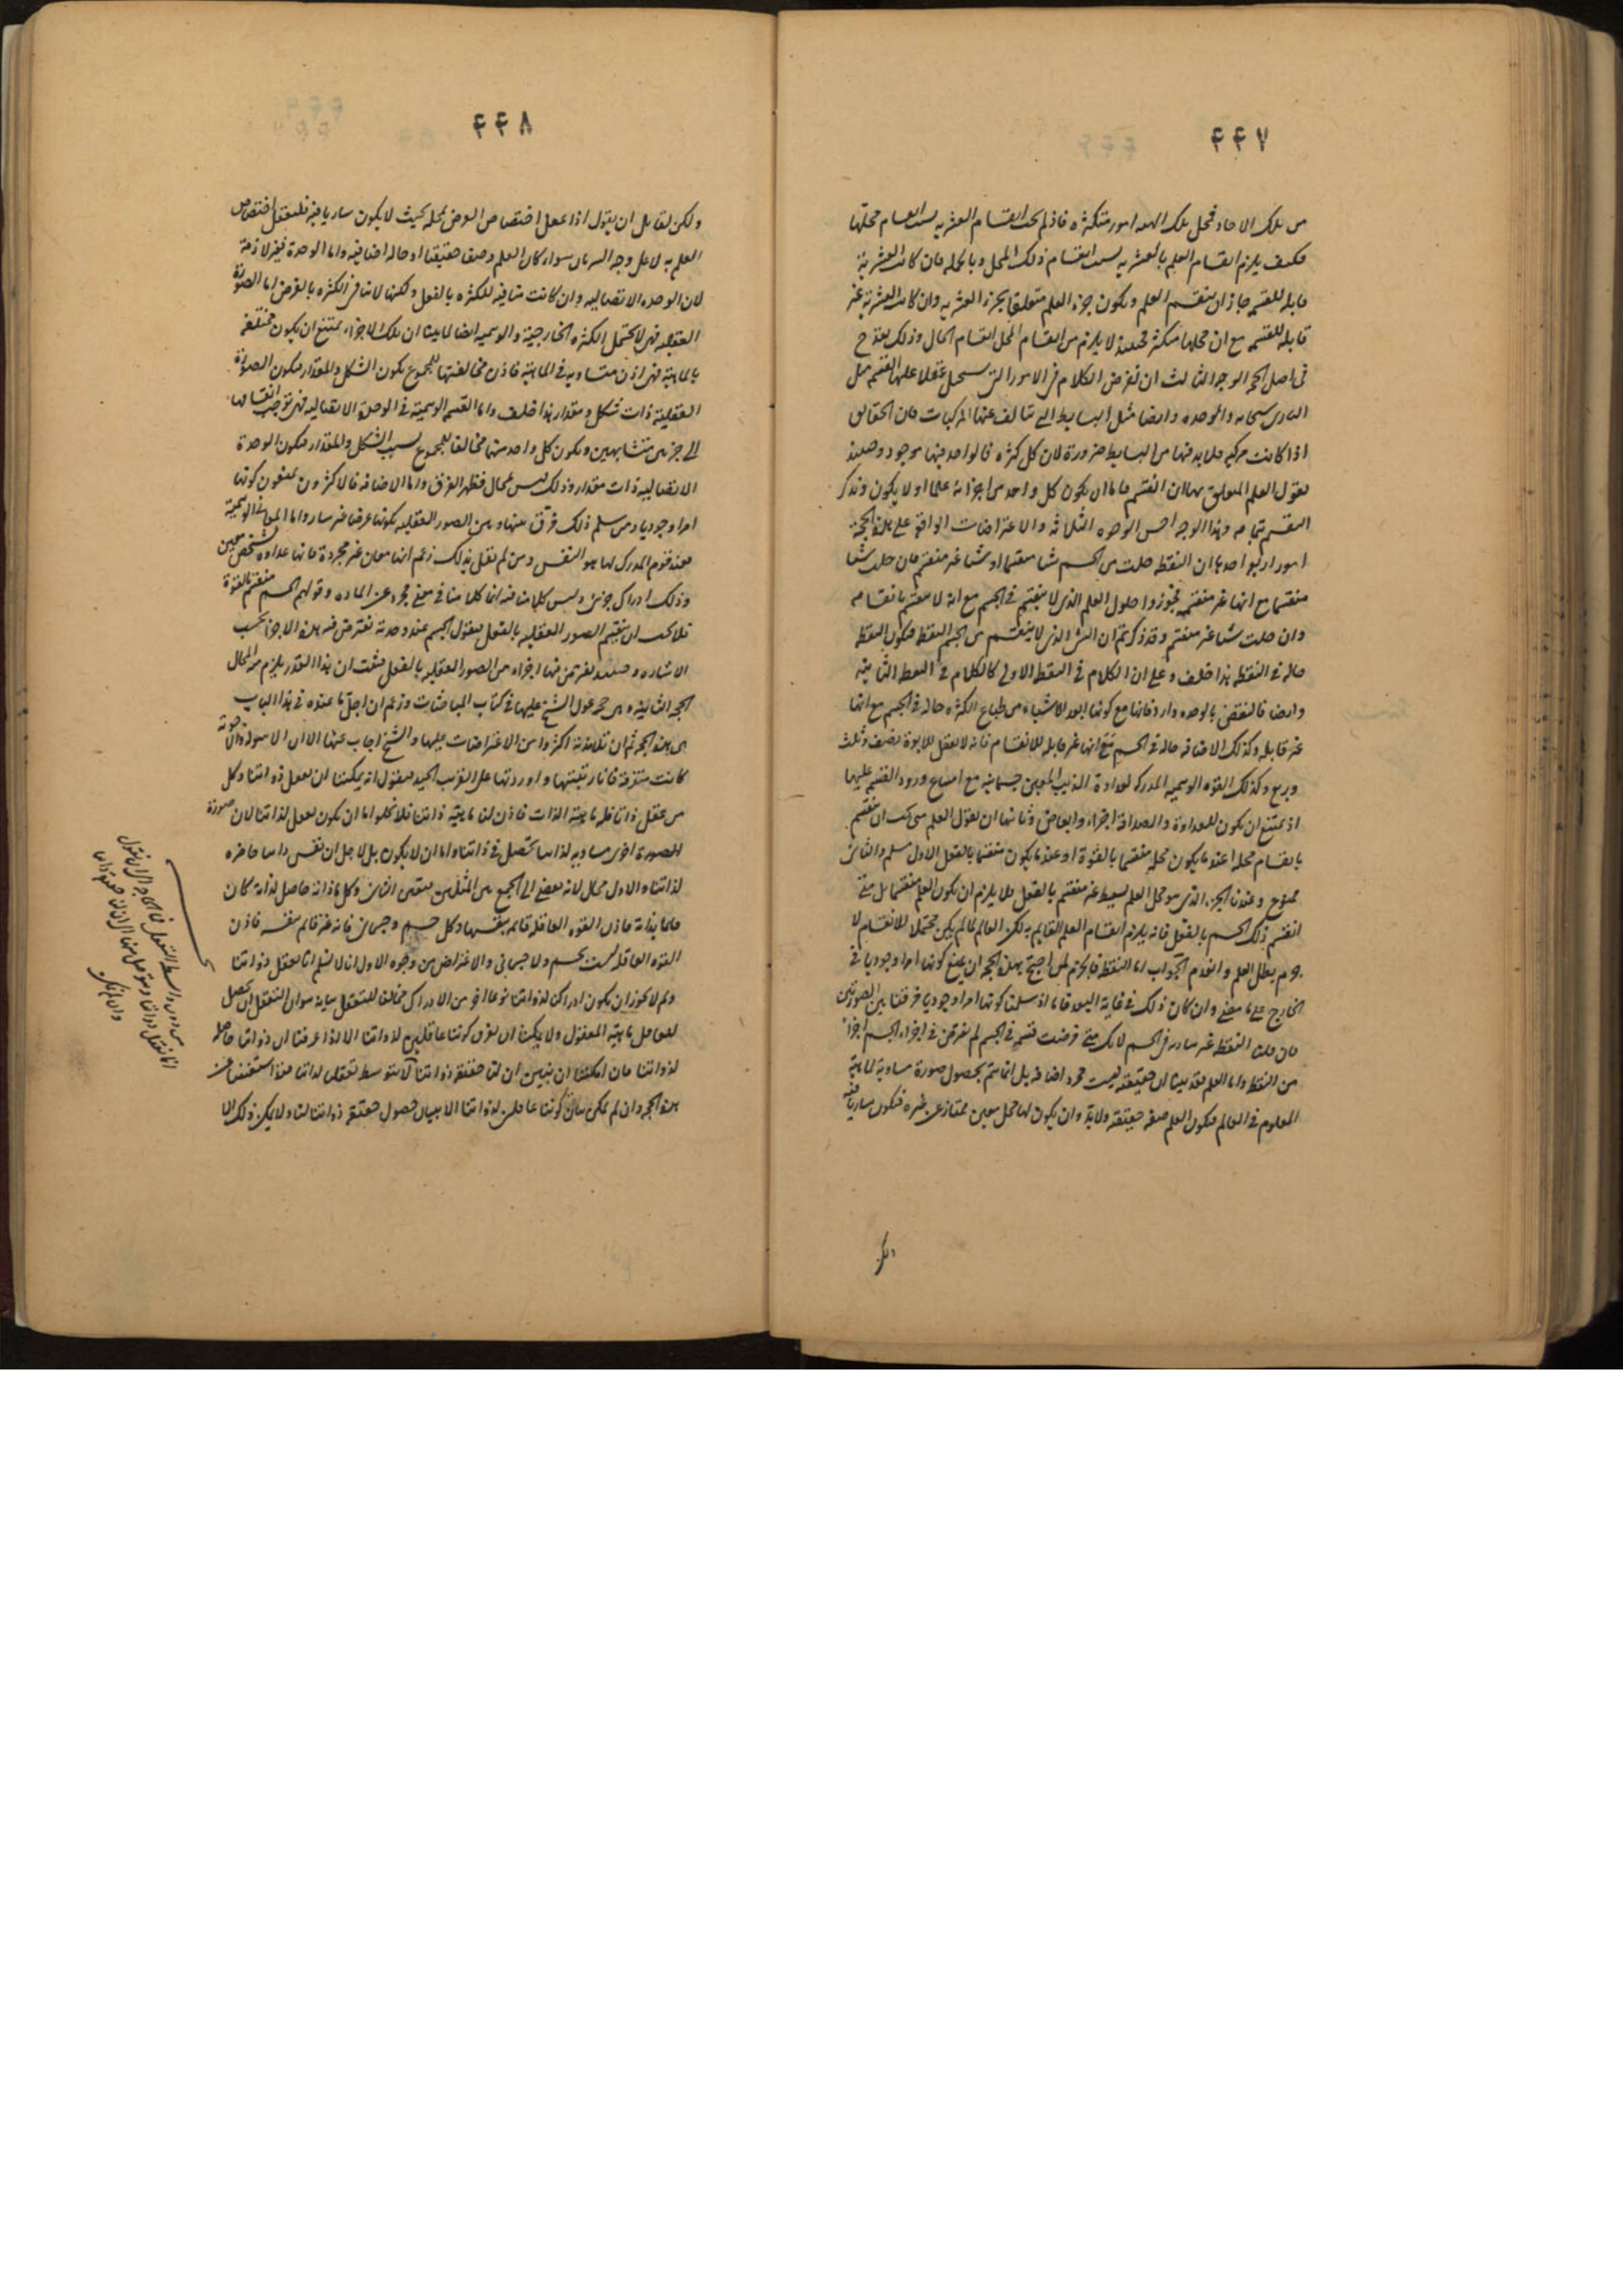 ٤٤٧
من تلك الاحاد فمحل تلك الهيه امور متكثره فاذ لم يجب انقسام العشريه بسبب انقسام محلها
فكيف يلزم انقسام العلم بالعشريه بسبب انقسام ذلك المحل وبالجمله فان كانت العشرية
قابله للقسمه جاز ان ينقسم العلم ويكون جزء العلم متعلقا بجزء العشريه وان كانت العشرية غير
قابله للقسمه مع ان محلها متكثر فحينئذ لا يلزم من انقسام المحل انقسام الحال وذلك يقدح
فى اصل الحجه الوجه الثالث ان نفرض الكلام فى الامور التى يستحيل عقلا عليها القسمه مثل
البارى سبحانه والوحده وايضا مثل البسايط التى تتالف عنها المركبات فان الحقايق
اذا كانت مركبه فلا بد فيها من البسايط ضرورة لان كل كثره فالواحد فيها موجود وحينئذ
نقول العلم المتعلق بها ان انقسم فاما ان يكون كل واحد من اجزائه علما او لا يكون ونذكر
التقسيم بتمامه وهذا الوجه احسن الوجوه الثلاثه والاعتراضات الواقعة على هذه الحجة
امور اربعه احدها ان النقطه حلت من الجسم شيا منقسما او شيا غير منقسم فان حلت شيا
منقسما مع انها غير منقسمه فجوزوا حلول العلم الذى لا ينقسم فى الجسم مع انه لا ينقسم بانقسامه
وان حلت شيا غير منقسم وقد ذكرتم ان الشئ الذى لا ينقسم من الجسم النقطه فيكون النقطه
حاله فى النقطه هذا خلف وعلى ان الكلام فى النقطه الاولى كالكلام فى النقطه الثانيه
وايضا فالنقض بالوحده وارد فانها مع كونها ابعد الاشياء من طباع الكثره حاله فى الجسم مع انها
غير قابله وكذلك الاضافه حاله فى الجسم مع انها غير قابله للانقسام فانه لا يعقل للابوة نصف وثلث
وربع وكذلك القوه الوهميه المدركه لعداوة الذيب المعين جسمانيه مع امتناع ورود القسمه عليها
اذ يمتنع ان يكون للعداوة والصداقة اجزاء وابعاض وثانيها ان نقول العلم متى يجب ان ينقسم
بانقسام محله اعند ما يكون محله منقسما بالقوة او عند ما يكون منقسما بالفعل الاول مسلم والثانى
ممنوع وعندنا الجزء الذى هو محل العلم بسيط غير منقسم بالفعل فلا يلزم ان يكون العلم منقسما بل متى
انقسم ذلك الجسم بالفعل فانه يلزم انقسام العلم القايم به لكن العالم لما لم يكن محتملا للانقسام لا
جرم بطل العلم وانعدم الجواب اما النقطه فالجزم لمن احتج بهذه الحجه ان يمنع كونها امرا وجوديا فى
الخارج على ما مضى وان كان ذلك فى غاية البعد فاما اذ سلمنا كونها امرا وجوديا فرقنا بين الصورتين
فان قلت النقطه غير ساريه فى الجسم لانك متى فرضت قسمه فى الجسم لم تفرض فى اجزاء الجسم اجزاء
من النقطه واما العلم فقد بينا ان حقيقته ليست مجرد اضافه بل انما يتم بحصول صورة مساوية لماهية
المعلوم فى العالم فيكون العلم صفه حقيقته ولابد وان يكون لها محل معين ممتاز عن غيره فيكون ساريا فيه
ولكن
٤٤٨
ولكن لقايل ان يقول اذا عقل اختصاص العرض بمحله بحيث لا يكون ساريا فيه فليعقل اختصاص
العلم به لا على وجه السريان سواء كان العلم وصفا حقيقيا او حاله اضافيه واما الوحدة فغير لازمة
لان الوحده الاتصاليه وان كانت منافيه للكثره بالفعل ولكنها لا تنافى الكثره بالفرض اما الصورة
العقليه فهى لا تحتمل الكثره الخارجية والوهميه ايضا لما بينا ان تلك الاجزاء يمتنع ان يكون مختلفه
بالماهية فهى اذن متساويه فى الماهية فاذن مخالفتها للمجموع يكون الشكل والمقدار فيكون الصورة
العقلية ذات شكل ومقدار هذا خلف واما القسمه الوهمية فى الوحدة الاتصاليه فهى توجب انقسامها
الى جزءين متشابهين ويكون كل واحد منهما مخالفا للمجموع بسبب الشكل والمقدار فيكون الوحدة
الاتصاليه ذات مقدار وذلك ليس بمحال فظهر الفرق واما الاضافه فالاكثرون يمنعون كونها
امرا وجوديا ومن سلم ذلك فرق بينها وبين الصور العقليه بكونها عرضا غير سار واما المعانى الوهمية
فعند قوم المدرك لها هو النفس ومن لم يقل بذلك زعم انها معان غير مجردة فانها عداوه شخص معين
وذلك ادراك جزئى وليس كلامنا فيه انما كلامنا فى معنى مجرد عن الماده وقولهم الجسم منقسم بالقوة
فلا يجب ان ينقسم الصور العقليه بالفعل فنقول الجسم عند وحدته تفترض فيه هذه الاجزاء بحسب
الاشاره وحينئذ نفرض فيها اجزاء من الصور العقليه بالفعل فثبت ان هذا القدر يلزم منه المحال
الحجه الثانيه وهى حجه عول الشيخ عليها فى كتاب المباحثات وزعم ان اجل ما عنده فى هذا الباب
هى هذه الحجه ثم ان تلامذته اكثروا من الاعتراضات عليها والشيخ اجاب عنها الا ان الاسولة والاجوبة
كانت متفرقة فانا رتبتها واوردتها على الترتيب الجيد فنقول انه يمكننا ان نعقل ذواتنا وكل
من عقل ذاتا فله ماهية الذات فاذن لنا ماهية ذاتنا فلا يخلو اما ان يكون تعقل لذاتنا لان صورة
الصورة اخرى مساويه لذاتنا تحصل فى ذاتنا واما ان لا يكون بل لاجل ان نفس ذاتنا حاضره
لذاتنا والاول محال لانه يفضى الى الجمع بين المثلين فتعين الثانى وكل ما ذاته حاصل لذاته كان
قايما بذاته فاذن القوه العاقله قائمه بنفسها وكل جسم وجسمانى فانه غير قائم بنفسه فاذن
القوه العاقله ليست بجسم ولا جسمانى والاعتراض من وجوه الاول انا لا نسلم انا نعقل ذواتنا
ولم لا يجوز ان يكون ادراكنا لذواتنا نوعا اخر من الادراك مخالفا للتعقل بيانه هو ان التعقل ان يحصل
للعاقل ماهية المعقول ولا يمكننا ان نعرف كوننا عاقلين لذواتنا الا اذا عرفنا ان ذواتنا حاصله
لذواتنا فان امكننا ان نتبين ان لنا حقيقة ذواتنا لا بتوسط تعقلنا لذاتنا فقد استغنينا عن
هذه الحجه وان لم يمكن بيان كوننا عاقلين لذواتنا الا ببيان حصول حقيقة ذواتنا لنا ولا يمكن ذلك الا